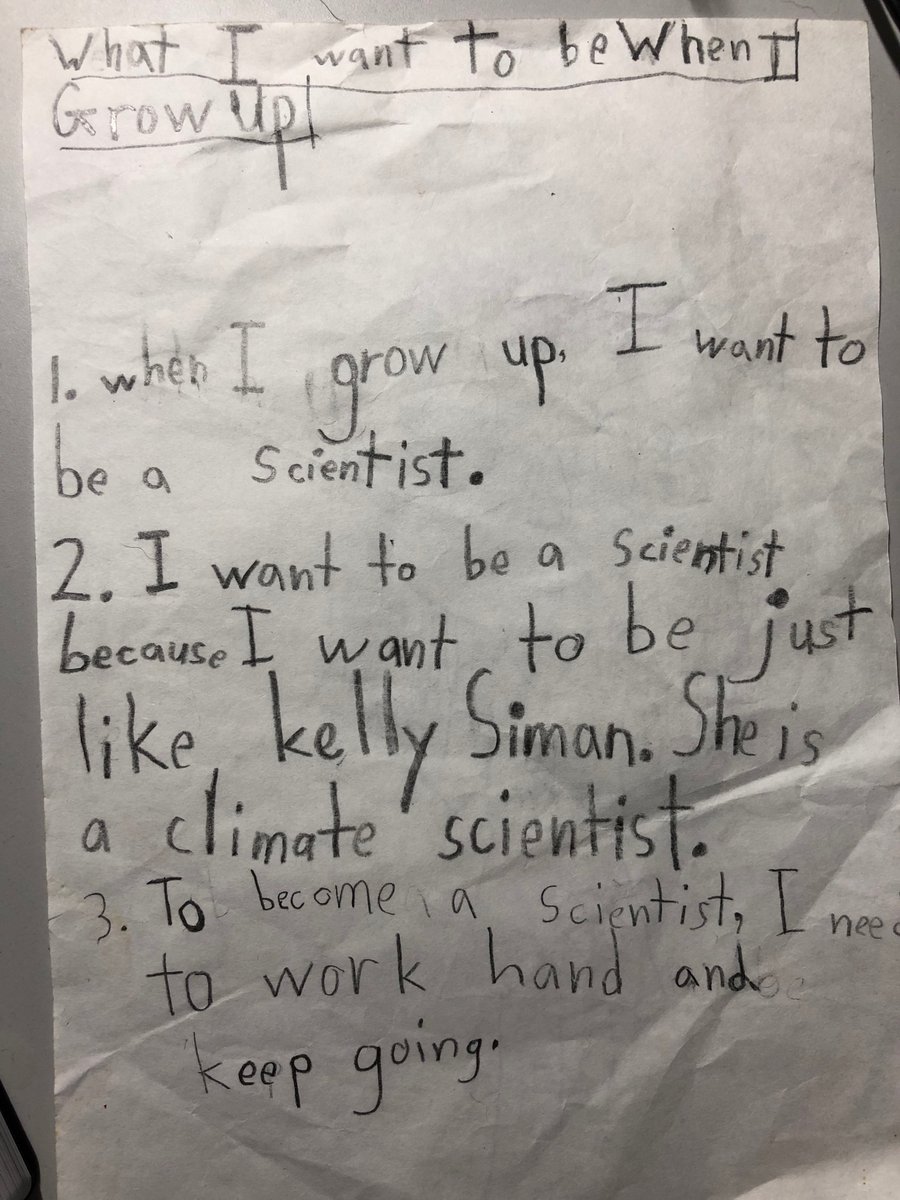 What I want to be When I
Grow Up!
1. when I grow up, I want to
be a scientist.
2. I want to be a scientist
because I want to be just
like kelly Siman. She is
a climate scientist.
3. To become a scientist, I need
to work hand and
keep going.